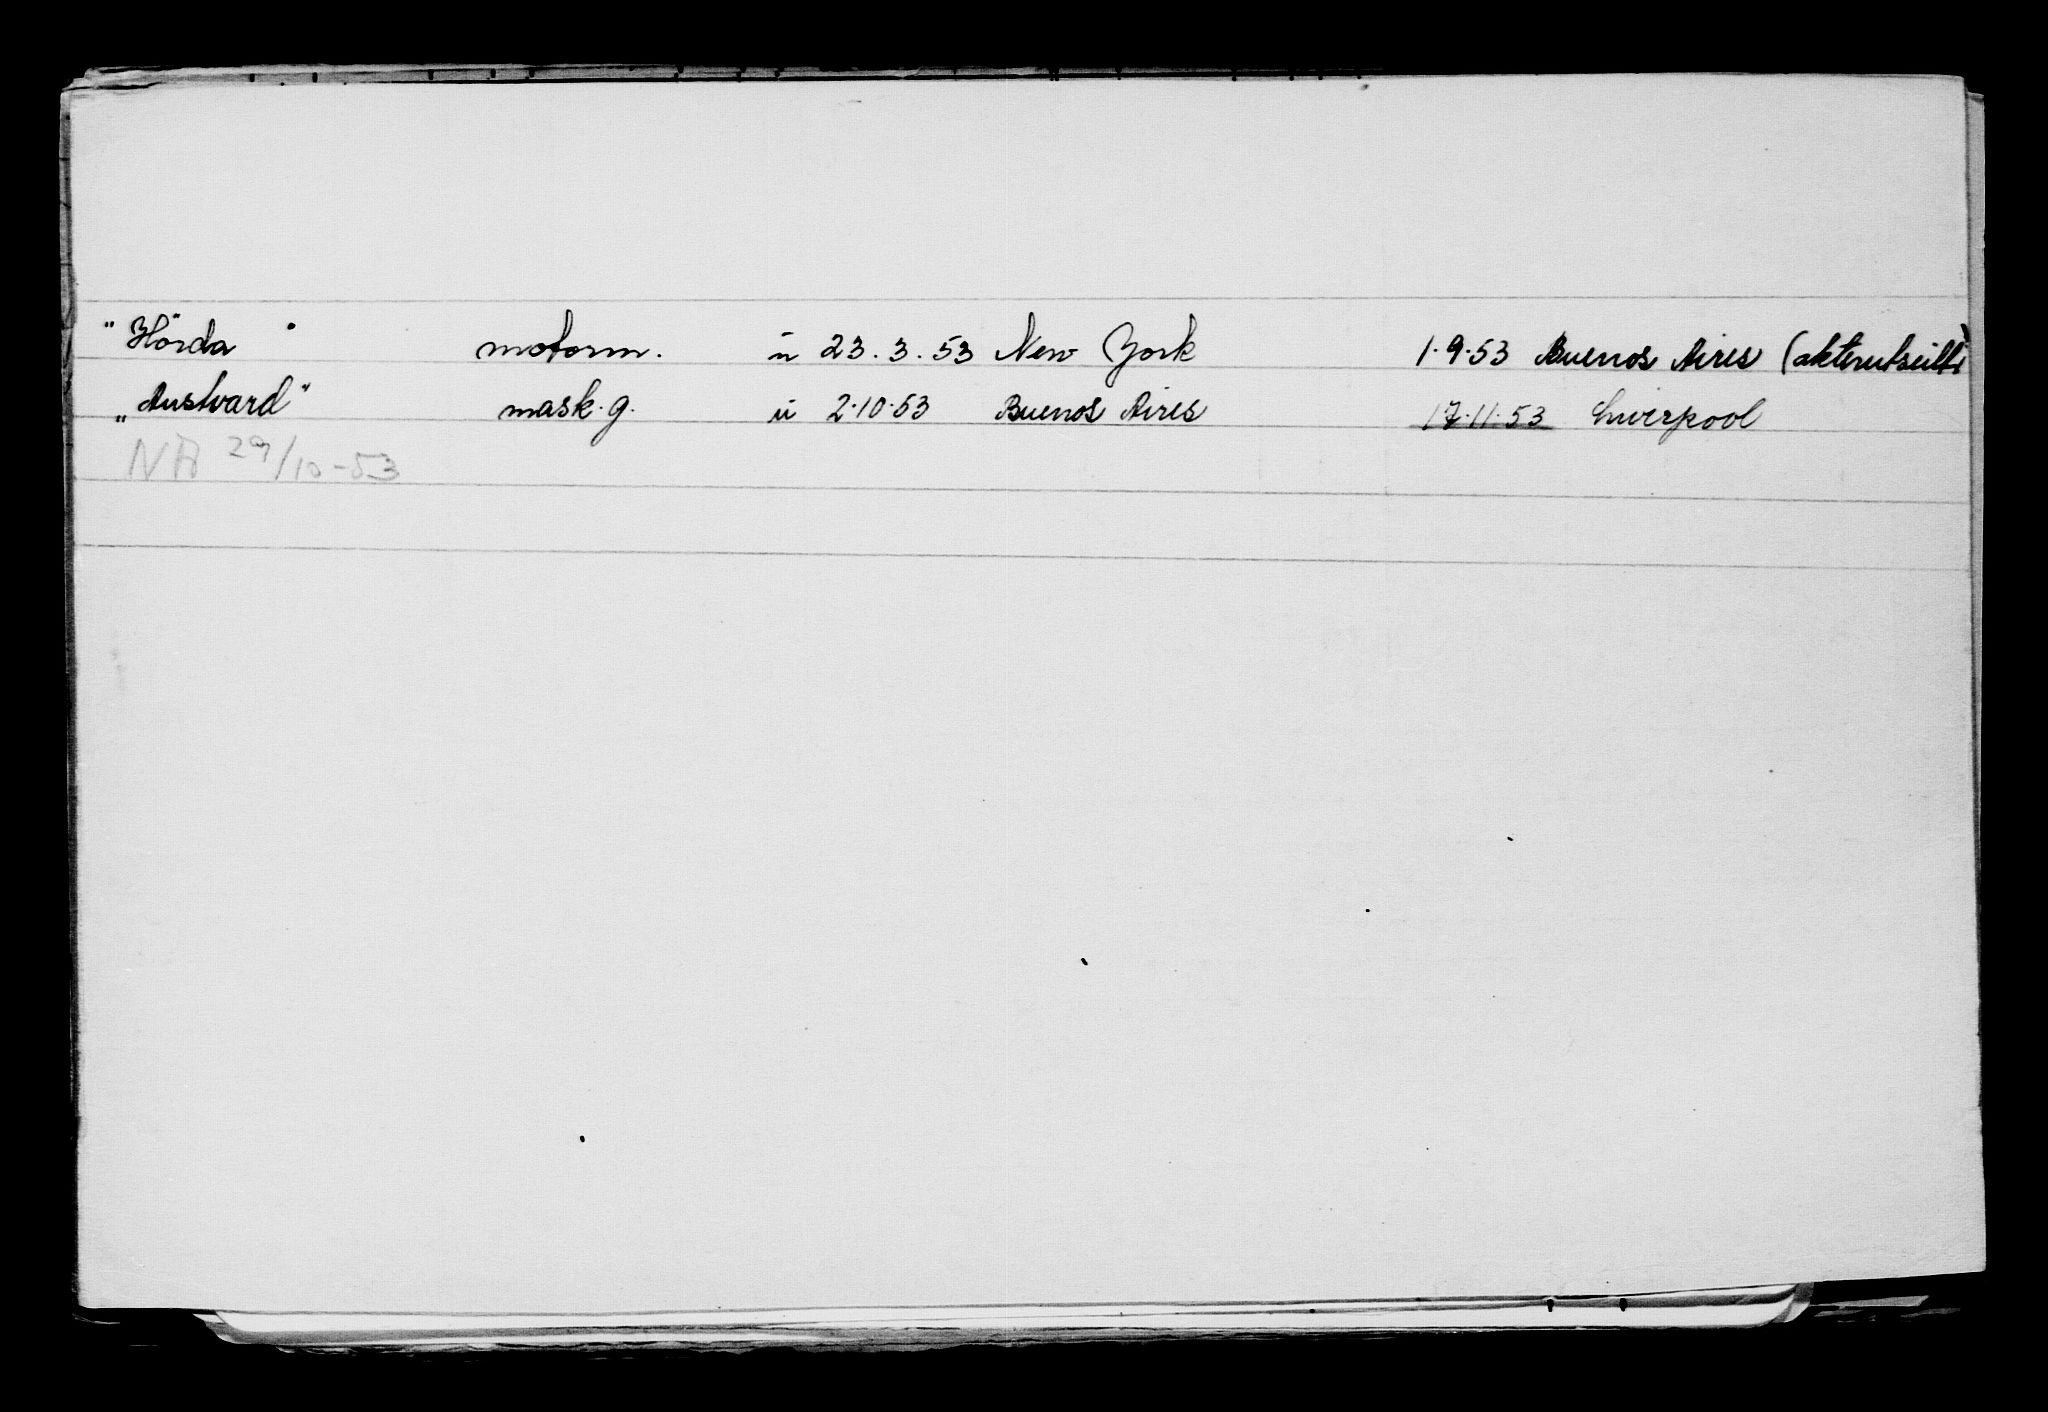 "Hörda" motorm. u 23.3.53 New York 1.9.53 Buenos Aires (akterutseilt)
"Austvard" mask.g. u 2.10.53 Buenos Aires 17.11.53 Liverpool
NA 29/10-53